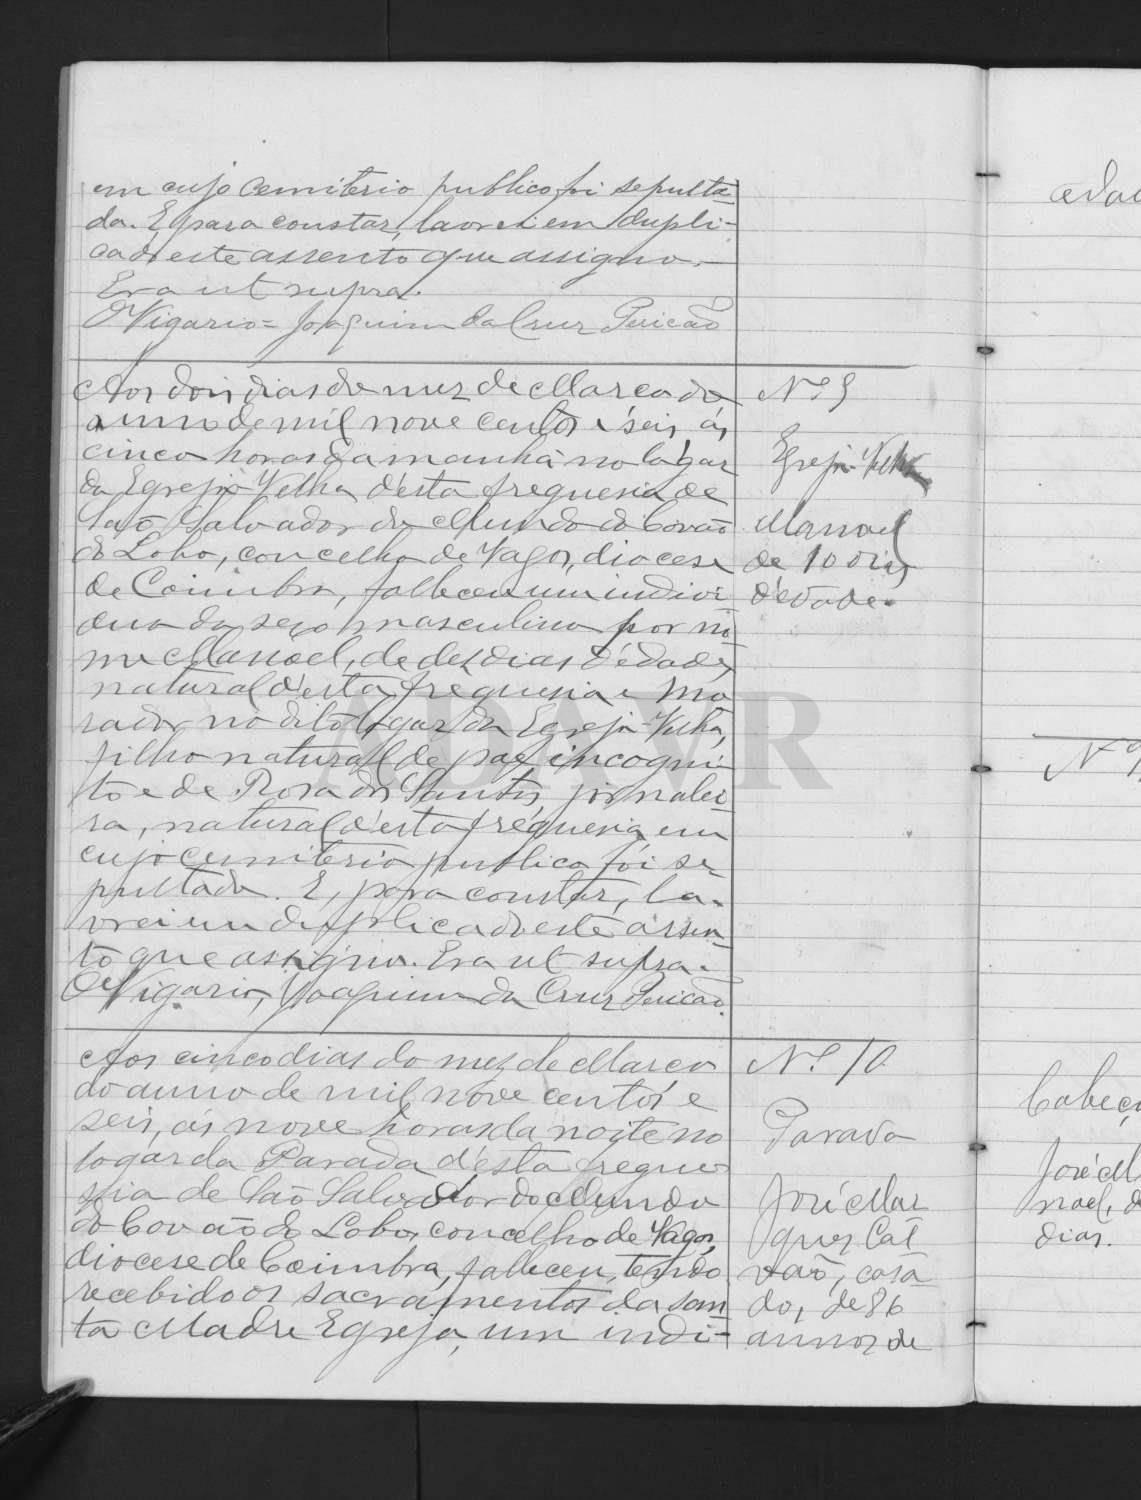 em cujo cemiterio publico foi sepulta-
da. E, para constar, lavrei em dupli-
cado este assento que assigno.
Era ut supra.
O Vigario = Joaquim da Cruz Pericão
Aos dois dias do mez de Março do
anno de mil nove centos e seis, ás
cinco horas da manhã no logar
da Egreja Velha d'esta freguesia de
São Salvador do Mundo do Covão
do Lobo, concelho de Vagos, diocese
de Coimbra, falleceu um indivi-
duo do sexo masculino por no-
me Manoel, de dez dias d'edade,
natural d'esta freguesia e mo-
rador no dito logar da Egreja Velha,
filho natural de pae incogni-
to e de Rosa dos Santos, jornalei-
ra, natural d'esta freguesia em
cujo cemiterio publico foi se-
pultado. E, para constar, la-
vrei em duplicado este assen-
to que assigno. Era ut supra.
O Vigario, Joaquim da Cruz Pericão.
Nº 9
Egreja Velha
Manoel
de 10 dias
d'edade.
Aos cinco dias do mez de Março
do anno de mil nove centos e
seis, ás nove horas da noite no
logar da Parada d'esta fregue-
sia de São Salvador do Mundo
do Covão do Lobo, concelho de Vagos,
diocese de Coimbra, falleceu, tendo
recebido os sacramentos da san-
ta Madre Egreja, um indi-
Nº 10
Parada
José Mar
ques Cat
vão, casa
do, de 86
annos de
ADAVR
edade
Nº
Cabeço
José Ma
noel, de
dias.